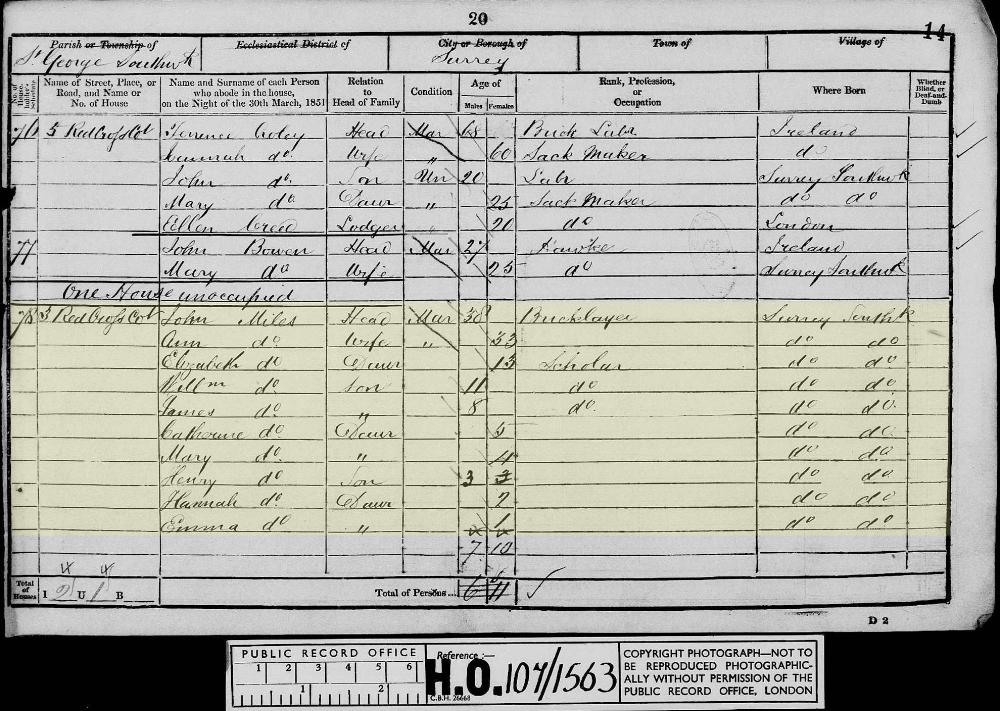 20
14
Parish or Township of Ecclesiastical District of City or Borough of Town of Village of
St George Southwk Surrey
No. of House-holder's Schedule Name of Street, Place, or Road, and Name or No. of House Name and Surname of each Person who abode in the house, on the Night of the 30th March, 1851 Relation to Head of Family Condition Age of Males Females Rank, Profession, or Occupation Where Born Whether Blind, or Deaf-and-Dumb
76 5 Red Cross Cot Terence Coley Head Mar 68 Brick Labr Ireland
Hannah do. Wife " 60 Sack Maker do
John do. Son Un 20 Labr Surrey Southwk
Mary do Daur " 25 Sack Maker do do
Ellen Creed Lodger 20 do London
77 John Bowen Head Mar 27 Hawker Ireland
Mary do Wife 25 do Surrey Southwk
One House unoccupied
78 3 Red Cross Cot John Miles Head Mar 38 Bricklayer Surrey Southk
Ann do Wife " 33 do do
Elizabeth do Daur 13 Scholar do do
Willm do Son 11 do do do
James do " 8 do. do do.
Catherine do. Daur 5 do do.
Mary do. " 4 do do
Henry do. Son 3 3 do do
Hannah do. Daur 2 do do
Emma do " 1 do do
7 10
4 4
Total of Houses I 2 U 1 B Total of Persons... 6 11
D 2
PUBLIC RECORD OFFICE
1 2 3 4 5 6
1 2
Reference :—
H.O. 107/1563
C.B.H. 26668
COPYRIGHT PHOTOGRAPH—NOT TO
BE REPRODUCED PHOTOGRAPHIC-
ALLY WITHOUT PERMISSION OF THE
PUBLIC RECORD OFFICE, LONDON